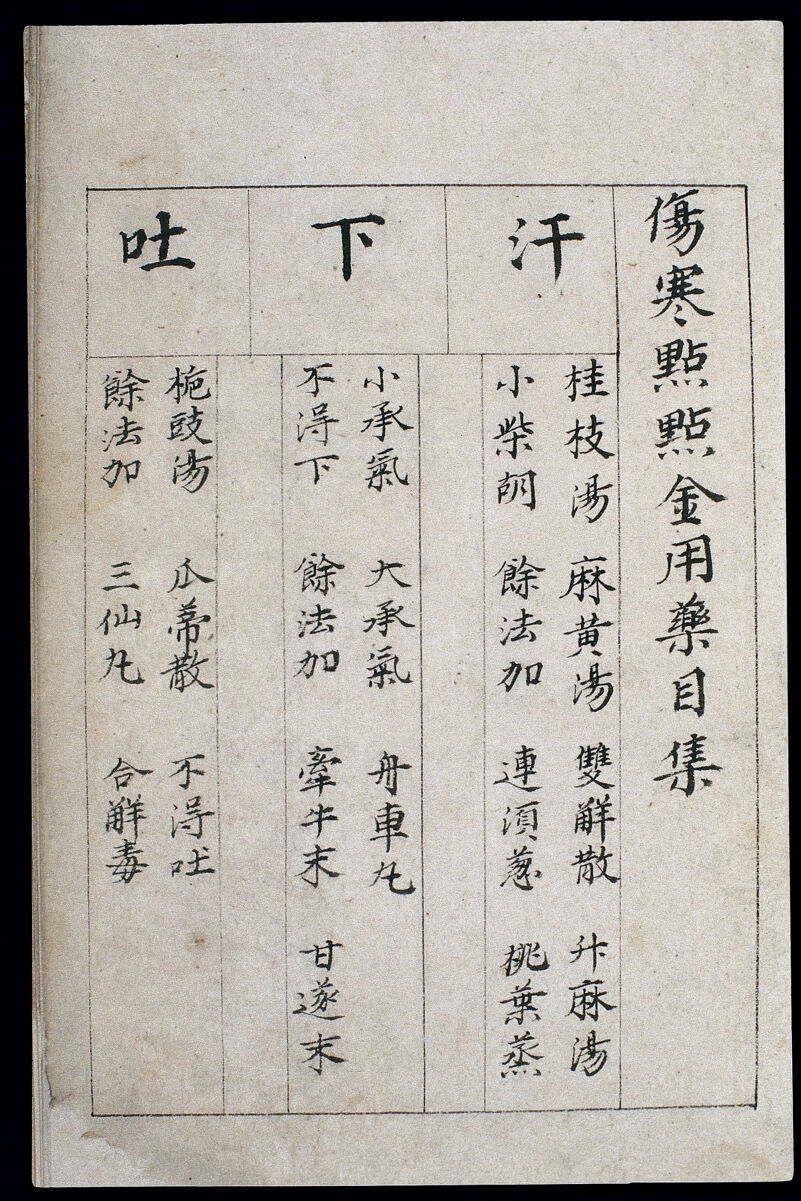 傷寒點點金用藥目集
汗
桂枝湯 麻黄湯 雙觧散 升麻湯
小柴胡 餘法加 連須葱 桃葉蒸
下
小承氣 大承氣 舟車丸
不淂下 餘法加 牽牛末 甘遂末
吐
梔豉湯 瓜蔕散 不淂吐
餘法加 三仙丸 合觧毒